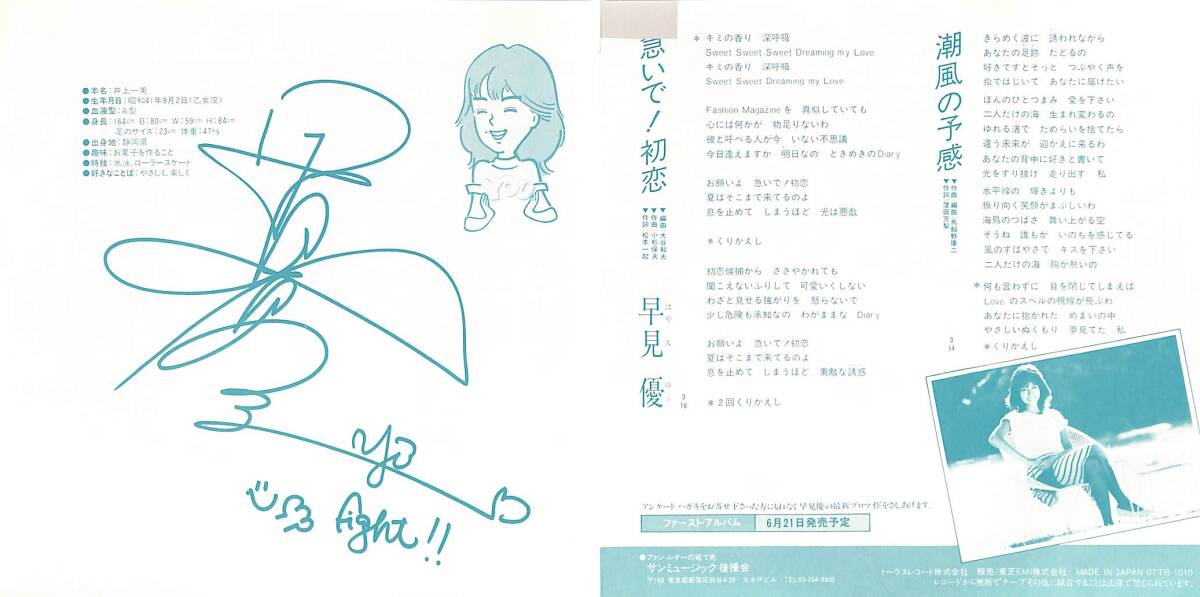 ●本名:井上一美
●生年月日:昭和41年9月2日(乙女座)
●血液型:A型
●身長:164cm B:80cm W:59cm H:84cm
足のサイズ:23cm 体重:47kg
●出身地:静岡県
●趣味:お菓子を作ること
●特技:水泳、ローラースケート
●好きなことば:やさしく、楽しく
YOU
Yu
fight!!
急いで!初恋
▼編曲 大谷和夫
▼作曲 小杉保夫
▼作詞 松本一起
早見 優
はやみ ゆう
3
16
*キミの香り 深呼吸
Sweet Sweet Sweet Dreaming my Love
キミの香り 深呼吸
Sweet Sweet Dreaming my Love
Fashion Magazineを 真似していても
心には何かが 物足りないわ
彼と呼べる人が今 いない不思議
今日逢えますか 明日なの ときめきのDiary
お願いよ 急いで!初恋
夏はそこまで来てるのよ
息を止めて しまうほど 光は悪戯
*くりかえし
初恋候補から ささやかれても
聞こえないふりして 可愛いくしない
わざと見せる強がりを 怒らないで
少し危険も承知なの わがままな Diary
お願いよ 急いで!初恋
夏はそこまで来てるのよ
息を止めて しまうほど 素敵な誘惑
*2回くりかえし
潮風の予感
▼作曲・編曲 馬飼野康二
▼作詞 窪田万梨
きらめく波に 誘われながら
あなたの足跡 たどるの
好きですとそっと つぶやく声を
指ではじいて あなたに届けたい
ほんのひとつまみ 愛を下さい
二人だけの海 生まれ変わるの
ゆれる渚で ためらいを捨てたら
違う未来が 迎かえに来るわ
あなたの背中に好きと書いて
光をすり抜け 走り出す 私
水平線の 輝きよりも
振り向く笑顔がまぶしいわ
海鳥のつばさ 舞い上がる空
そうね 誰もが いのちを感じてる
風のすばやさで キスを下さい
二人だけの海 胸が熱いの
*何も言わずに 目を閉じてしまえば
Love のスペルの視線が飛ぶわ
あなたに抱かれた めまいの中
やさしいぬくもり 夢見てた 私
*くりかえし
3
14
アンケートハガキをお寄せ下さった方にもれなく早見優の最新ブロマイドをさしあげます。
ファースト・アルバム 6月21日発売予定
●ファンレターの宛て先
サンミュージック後援会
〒160 東京都新宿区四谷4-28 大木戸ビル TEL03-354-8500
トーラスレコード株式会社 販売/東芝EMI株式会社 MADE IN JAPAN 07TR-1010
レコードから無断でテープその他に録音することは法律で禁じられています。